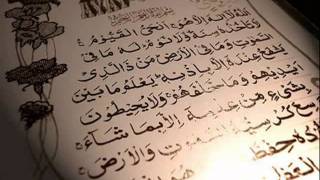 اَللّٰهُ لَا اِلٰهَ اِلَّا هُوَ اَلْحَيُّ الْقَيُّومُ
لَا تَأْخُذُهُ سِنَةٌ وَلَا نَوْمٌ لَهُ مَا فِي
السَّمٰوٰتِ وَمَا فِي الْاَرْضِ مَنْ ذَا الَّذِي
يَشْفَعُ عِنْدَهُ اِلَّا بِاِذْنِهِ يَعْلَمُ مَا بَيْنَ
اَيْدِيهِمْ وَمَا خَلْفَهُمْ وَلَا يُحِيطُونَ
بِشَيْءٍ مِنْ عِلْمِهِ اِلَّا بِمَا شَاءَ
وَسِعَ كُرْسِيُّهُ السَّمٰوٰتِ وَالْاَرْضَ
حِفْظُ